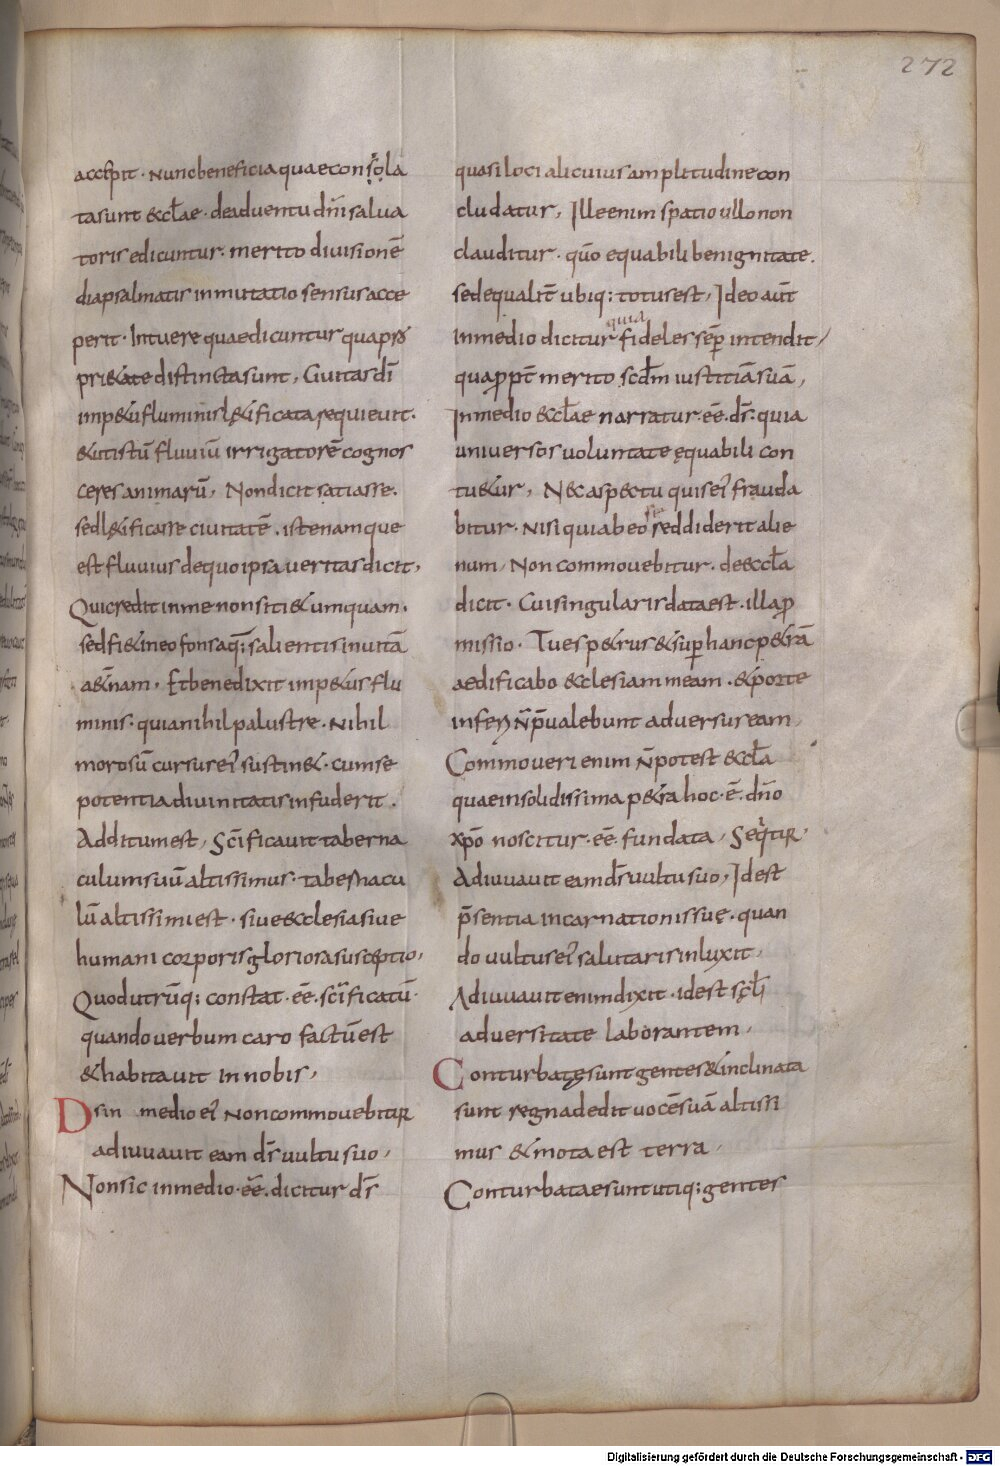 272
accepit · Nunc beneficia quae consola
ta sunt &ccłae · de adventu dn̄i salva
toris edicuntur · merito divisionē
diapsalmatis inmutatio sensus acce
perit · Intuere quae dicuntur qua pro
pri&ate distincta sunt, Civitas dī
imp&u fluminis l&ificata requievit ·
& ut istū fluviū irrigatorē cognos
ceres animarū, Non dicit satiasse ·
sed l&ificasse civitatē · iste namque
est fluvius de quo ipsa veritas dicit,
Qui credit in me non siti& umquam ·
sed fi& in eo fons aq; salientis in vitā
a&ernam, Et benedixit imp&us flu
minis · quia nihil palustre · Nihil
morosū cursus ei sustin& · cum se
potentia divinitatis infuderit ·
Additum est, Sc̄ificavit taberna
culum suū altissimus · tabernacu
lū altissimi est · sive &cclesia sive
humani corporis gloriosa susceptio,
Quod utrūq; constat · eē · sc̄ificatū ·
quando verbum caro factū est
& habitavit in nobis,
Ds in medio ei Non commovebitur
adiuvavit eam ds̄ vultu suo,
Non sic in medio · eē · dicitur ds̄
quasi loci alicuius amplitudine con
cludatur, Ille enim spatio ullo non
clauditur · quō equabili benignitate ·
sed equalit̄ ubiq; totus est, Ideo aūt
quia
in medio dicitur fideles sēp intendit,
quapropt̄ merito scd̄m iustitiā suā,
In medio &ccłae narratur · eē · ds̄ · quia
universos voluntate equabili con
tu&ur, Nec aspectu quis ei frauda
bitur · Nisi qui ab eo se reddiderit alie
num, Non commovebitur · de &ccła
dicit · Cui singularis data est · illa p̄
missio · Tu es p&rus & sup̄ hanc p&rā
aedificabo &cclesiam meam · & porte
inferi n̄ p̄valebunt adversus eam,
Commoveri enim n̄ potest &ccła
quae in solidissima p&ra hoc · ē · dn̄o
xp̄o noscitur · eē · fundata, Sequitur,
Adiuvavit eam ds̄ vultu suo, Id est
p̄sentia incarnationis suę · quan
do vultus ei salutaris inluxit,
Adiuvavit enim dixit · id est scłi
adversitate laborantem,
Conturbatę sunt gentes & inclinata
sunt regna dedit vocē suā altissi
mus & mota est terra,
Conturbatae sunt utiq; gentes
Digitalisierung gefördert durch die Deutsche Forschungsgemeinschaft - DFG